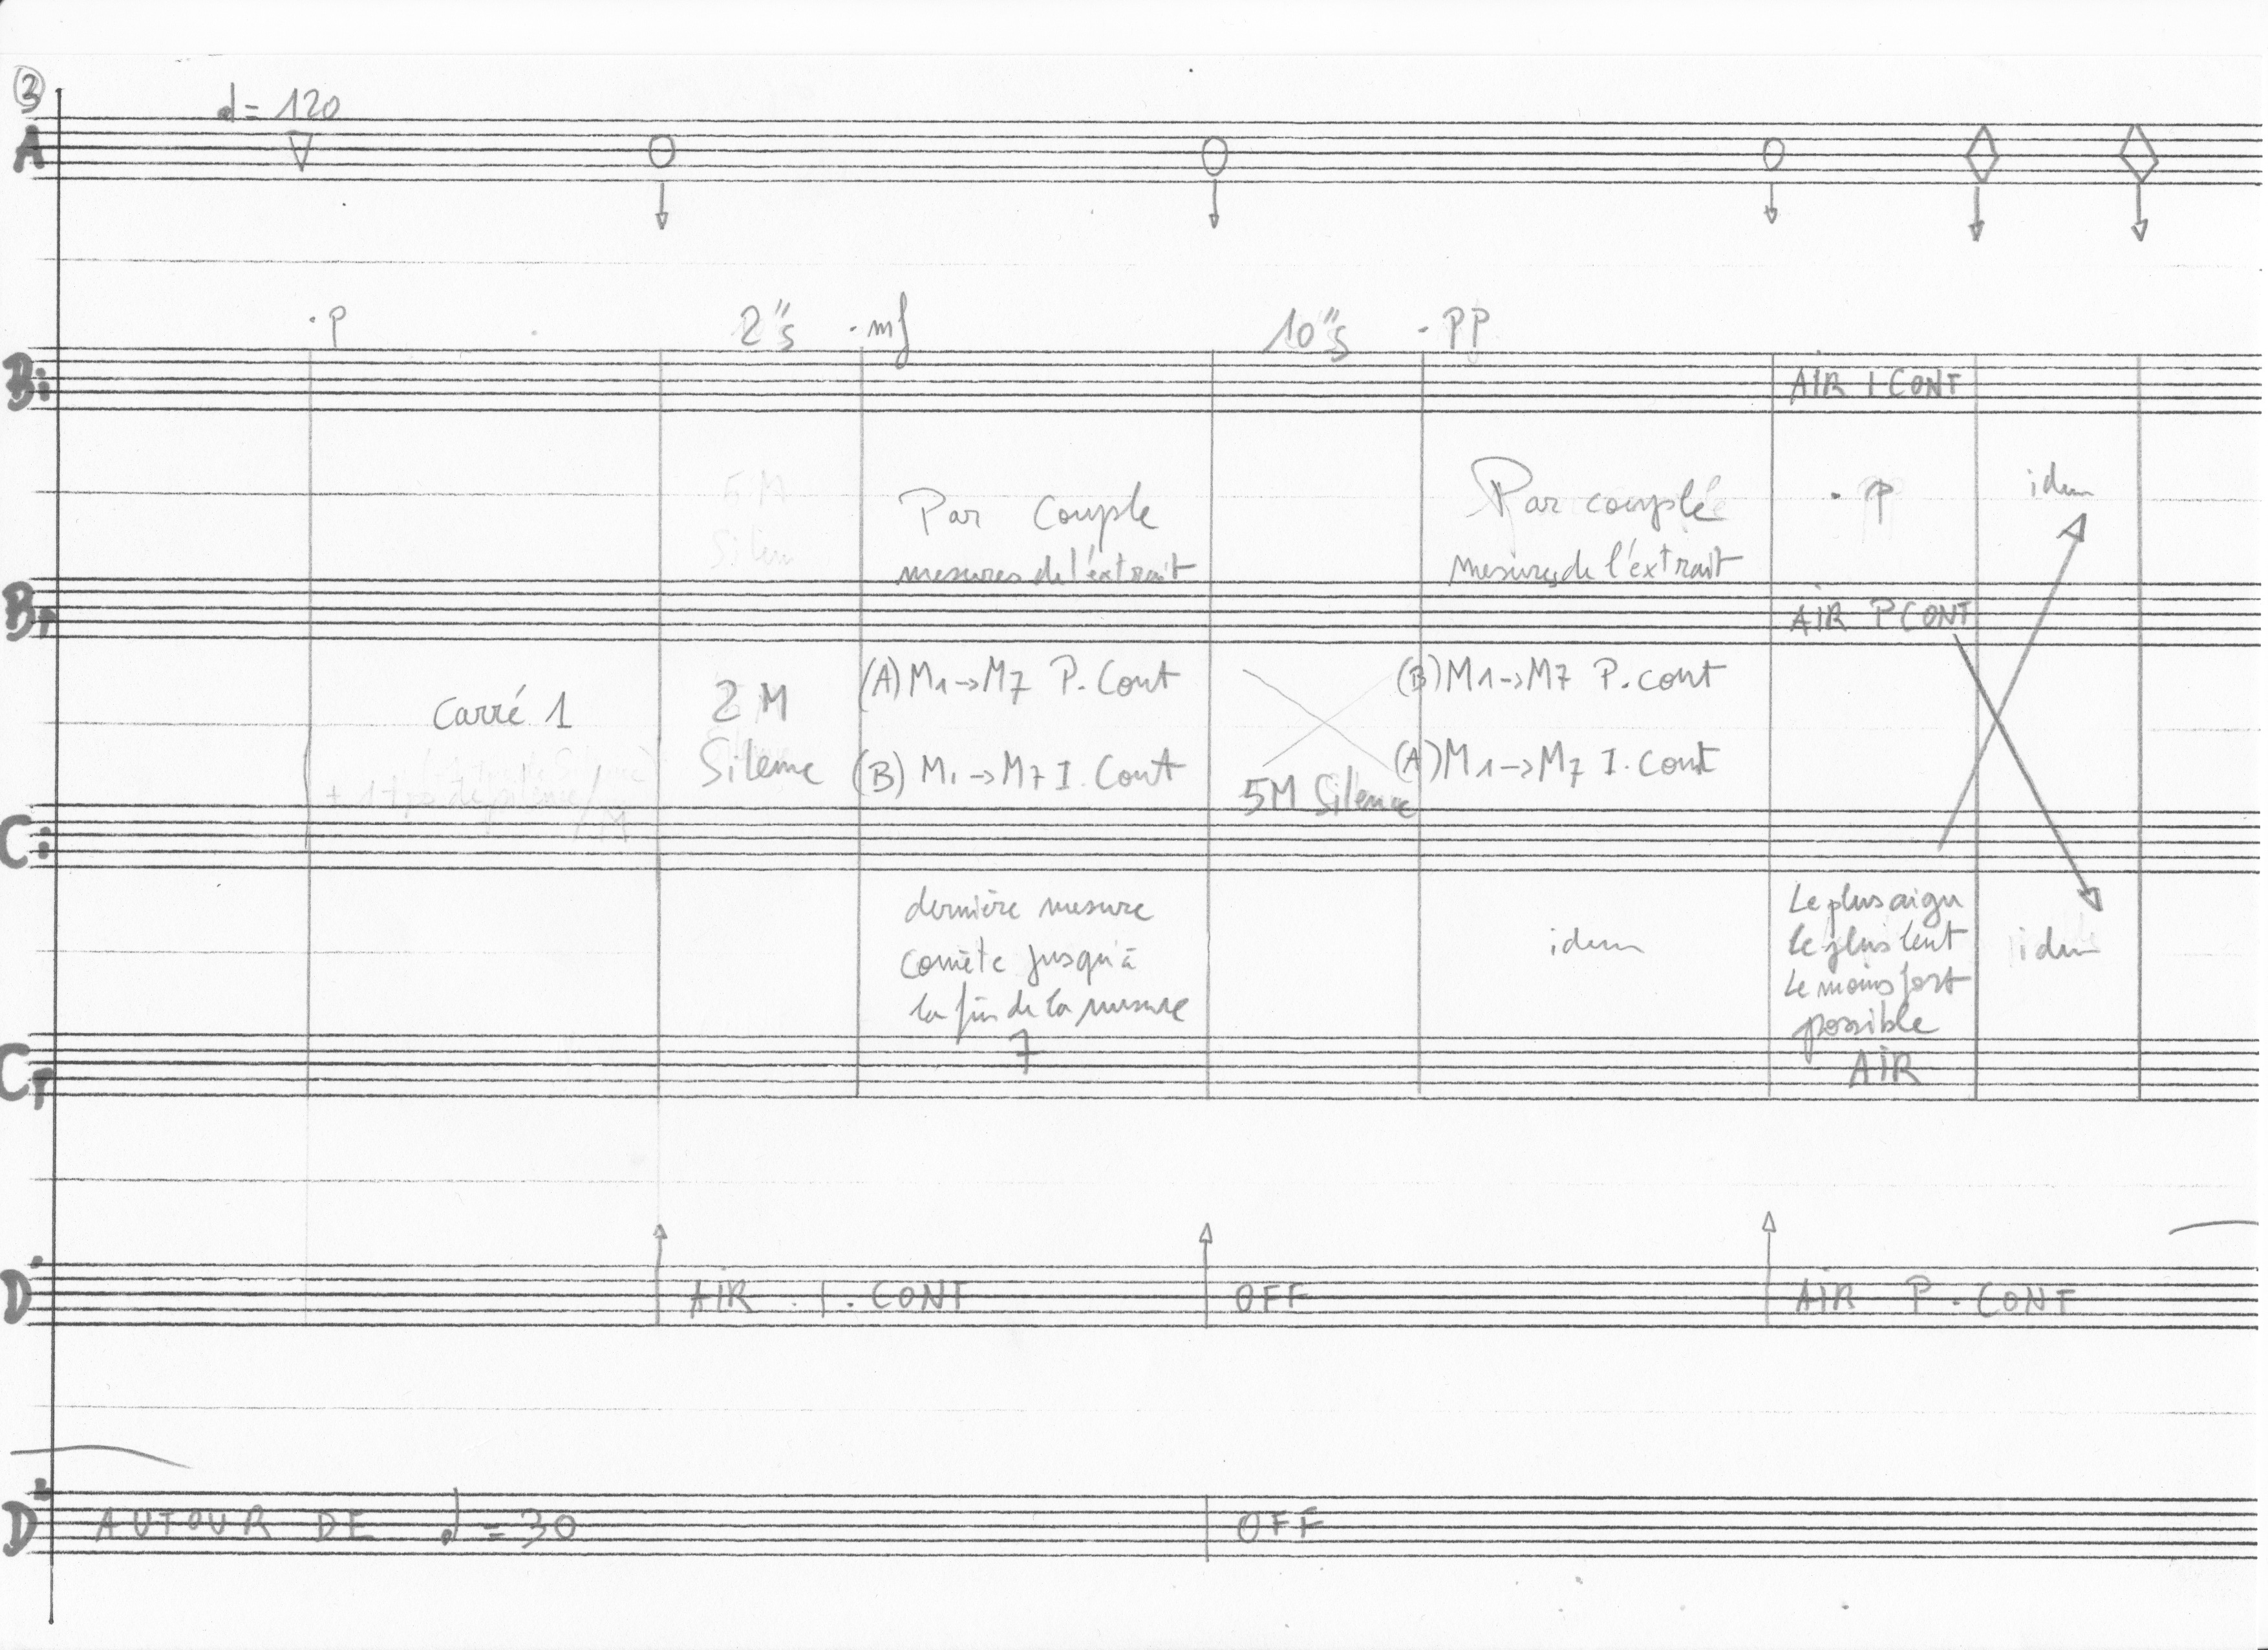 3
♩= 120
A
· P
2"s
· mf
10"s
· PP
Bi
AIR I CONT
5 M
Silen
Par Couple
mesures de l'extrait
Par couplé
mesures de l'extrait
· P
idem
Bp
AIR P CONT
Carré 1
2 M
Silence
(A) M1 → M7 P. Cont
(B) M1 → M7 I. Cont
5M Silence
(B) M1 → M7 P. cont
(A) M1 → M7 I. Cont
Ci
dernière mesure
comète jusqu'à
la fin de la mesure
7
idem
Le plus aigu
Le plus lent
Le moins fort
possible
AIR
idem
Cp
D
AIR . I . CONT
OFF
AIR P . CONT
D
AUTOUR DE ♩ = 30
OFF